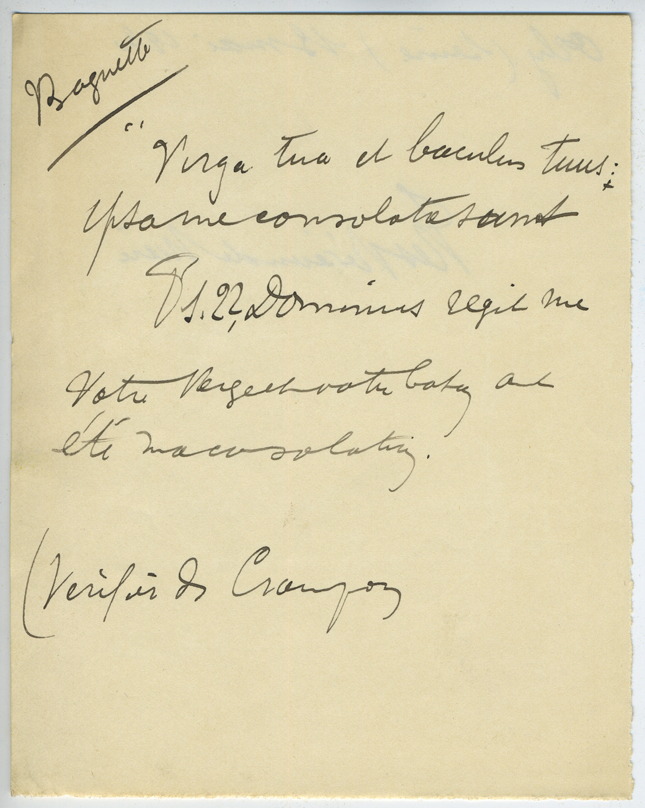 Baguette
"Virga tua et baculus tuus:
ipsa me consolata sunt
Ps. 22, Dominus regit me
Votre Verge et votre baton ont
été ma consolation.
(Vérifier ds Crampon